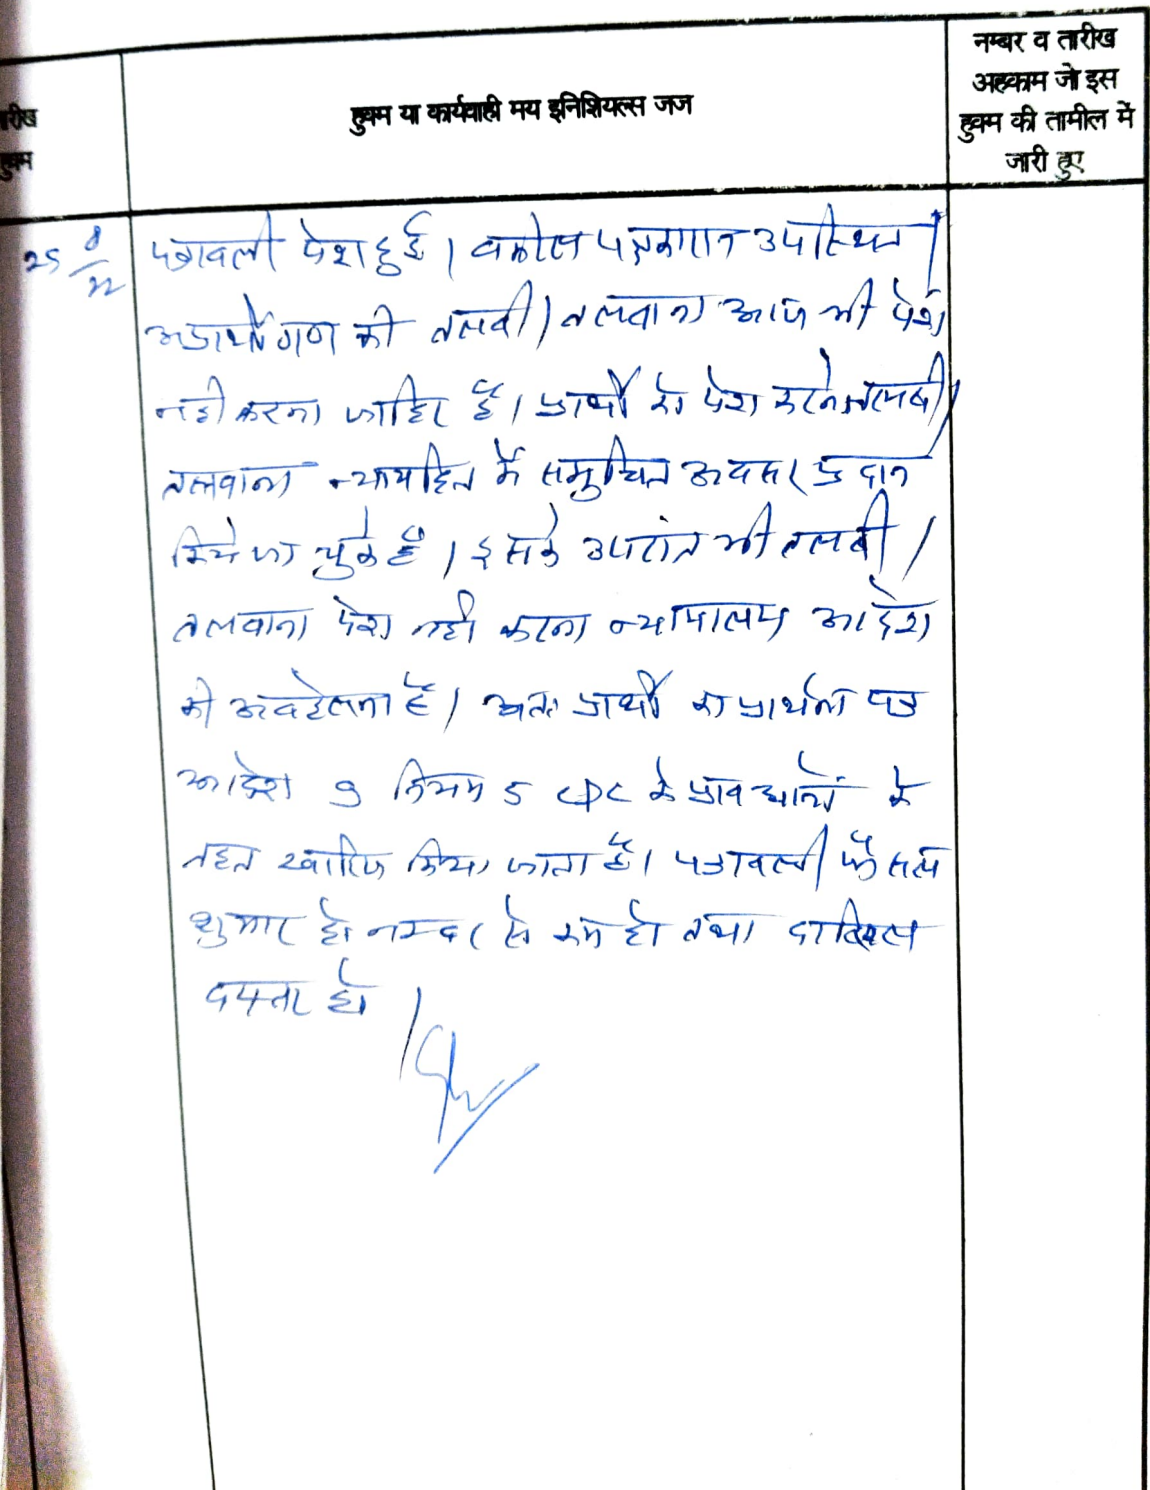 नम्बर व तारीख
अहकाम जो इस
हुक्म की तामील में
जारी हुए
हुक्म या कार्यवाही मय इनिशियल्स जज
रीख
हुक्म
25/8/22
पत्रावली पेश हुई। वकील पक्षकारान उपस्थित।
अप्रार्थीगण की तलबी/तलवाना आज भी पेश
नही करना जाहिर है। प्रार्थी को पेश करने तलबी/
तलवाना न्यायहित में समुचित अवसर प्रदान
किये जा चुके है। इसके उपरांत भी तलबी/
तलवाना पेश नही करना न्यायालय आदेश
की अवहेलना है। अतः प्रार्थी का प्रार्थना पत्र
आदेश 9 नियम 5 CPC के प्रावधानों के
तहत खारिज किया जाता है। पत्रावली फैसल
शुमार हो नम्बर से कम हो तथा दाखिल
दफ्तर हो।